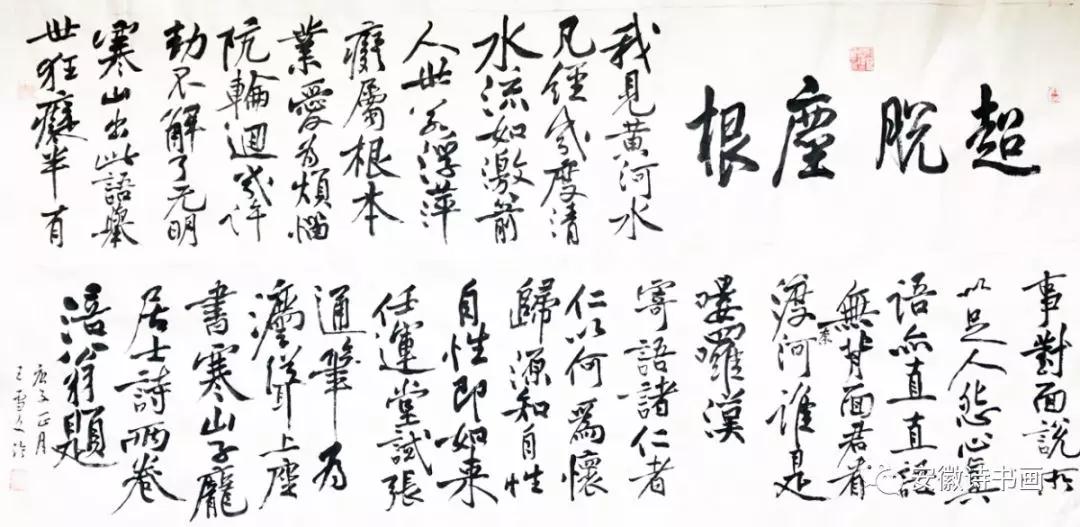 超脫塵根
我見黃河水
凡經幾度清
水流如激箭
人世若浮萍
癡屬根本
業愛为煩惱
阬輪迴幾許
劫不解了无明
寒山出此語舉
世狂癡半有
事對面說所
以足人怨心真
語亦直直語
無背面君看
渡奈河誰是
嘍囉漢
寄語諸仁者
仁以何爲懷
歸源知自性
自性即如来
任運堂試張
通筆为
灋聳上座
書寒山子龐
居士詩兩卷
涪翁題
庚子正月
王雪
安徽诗书画